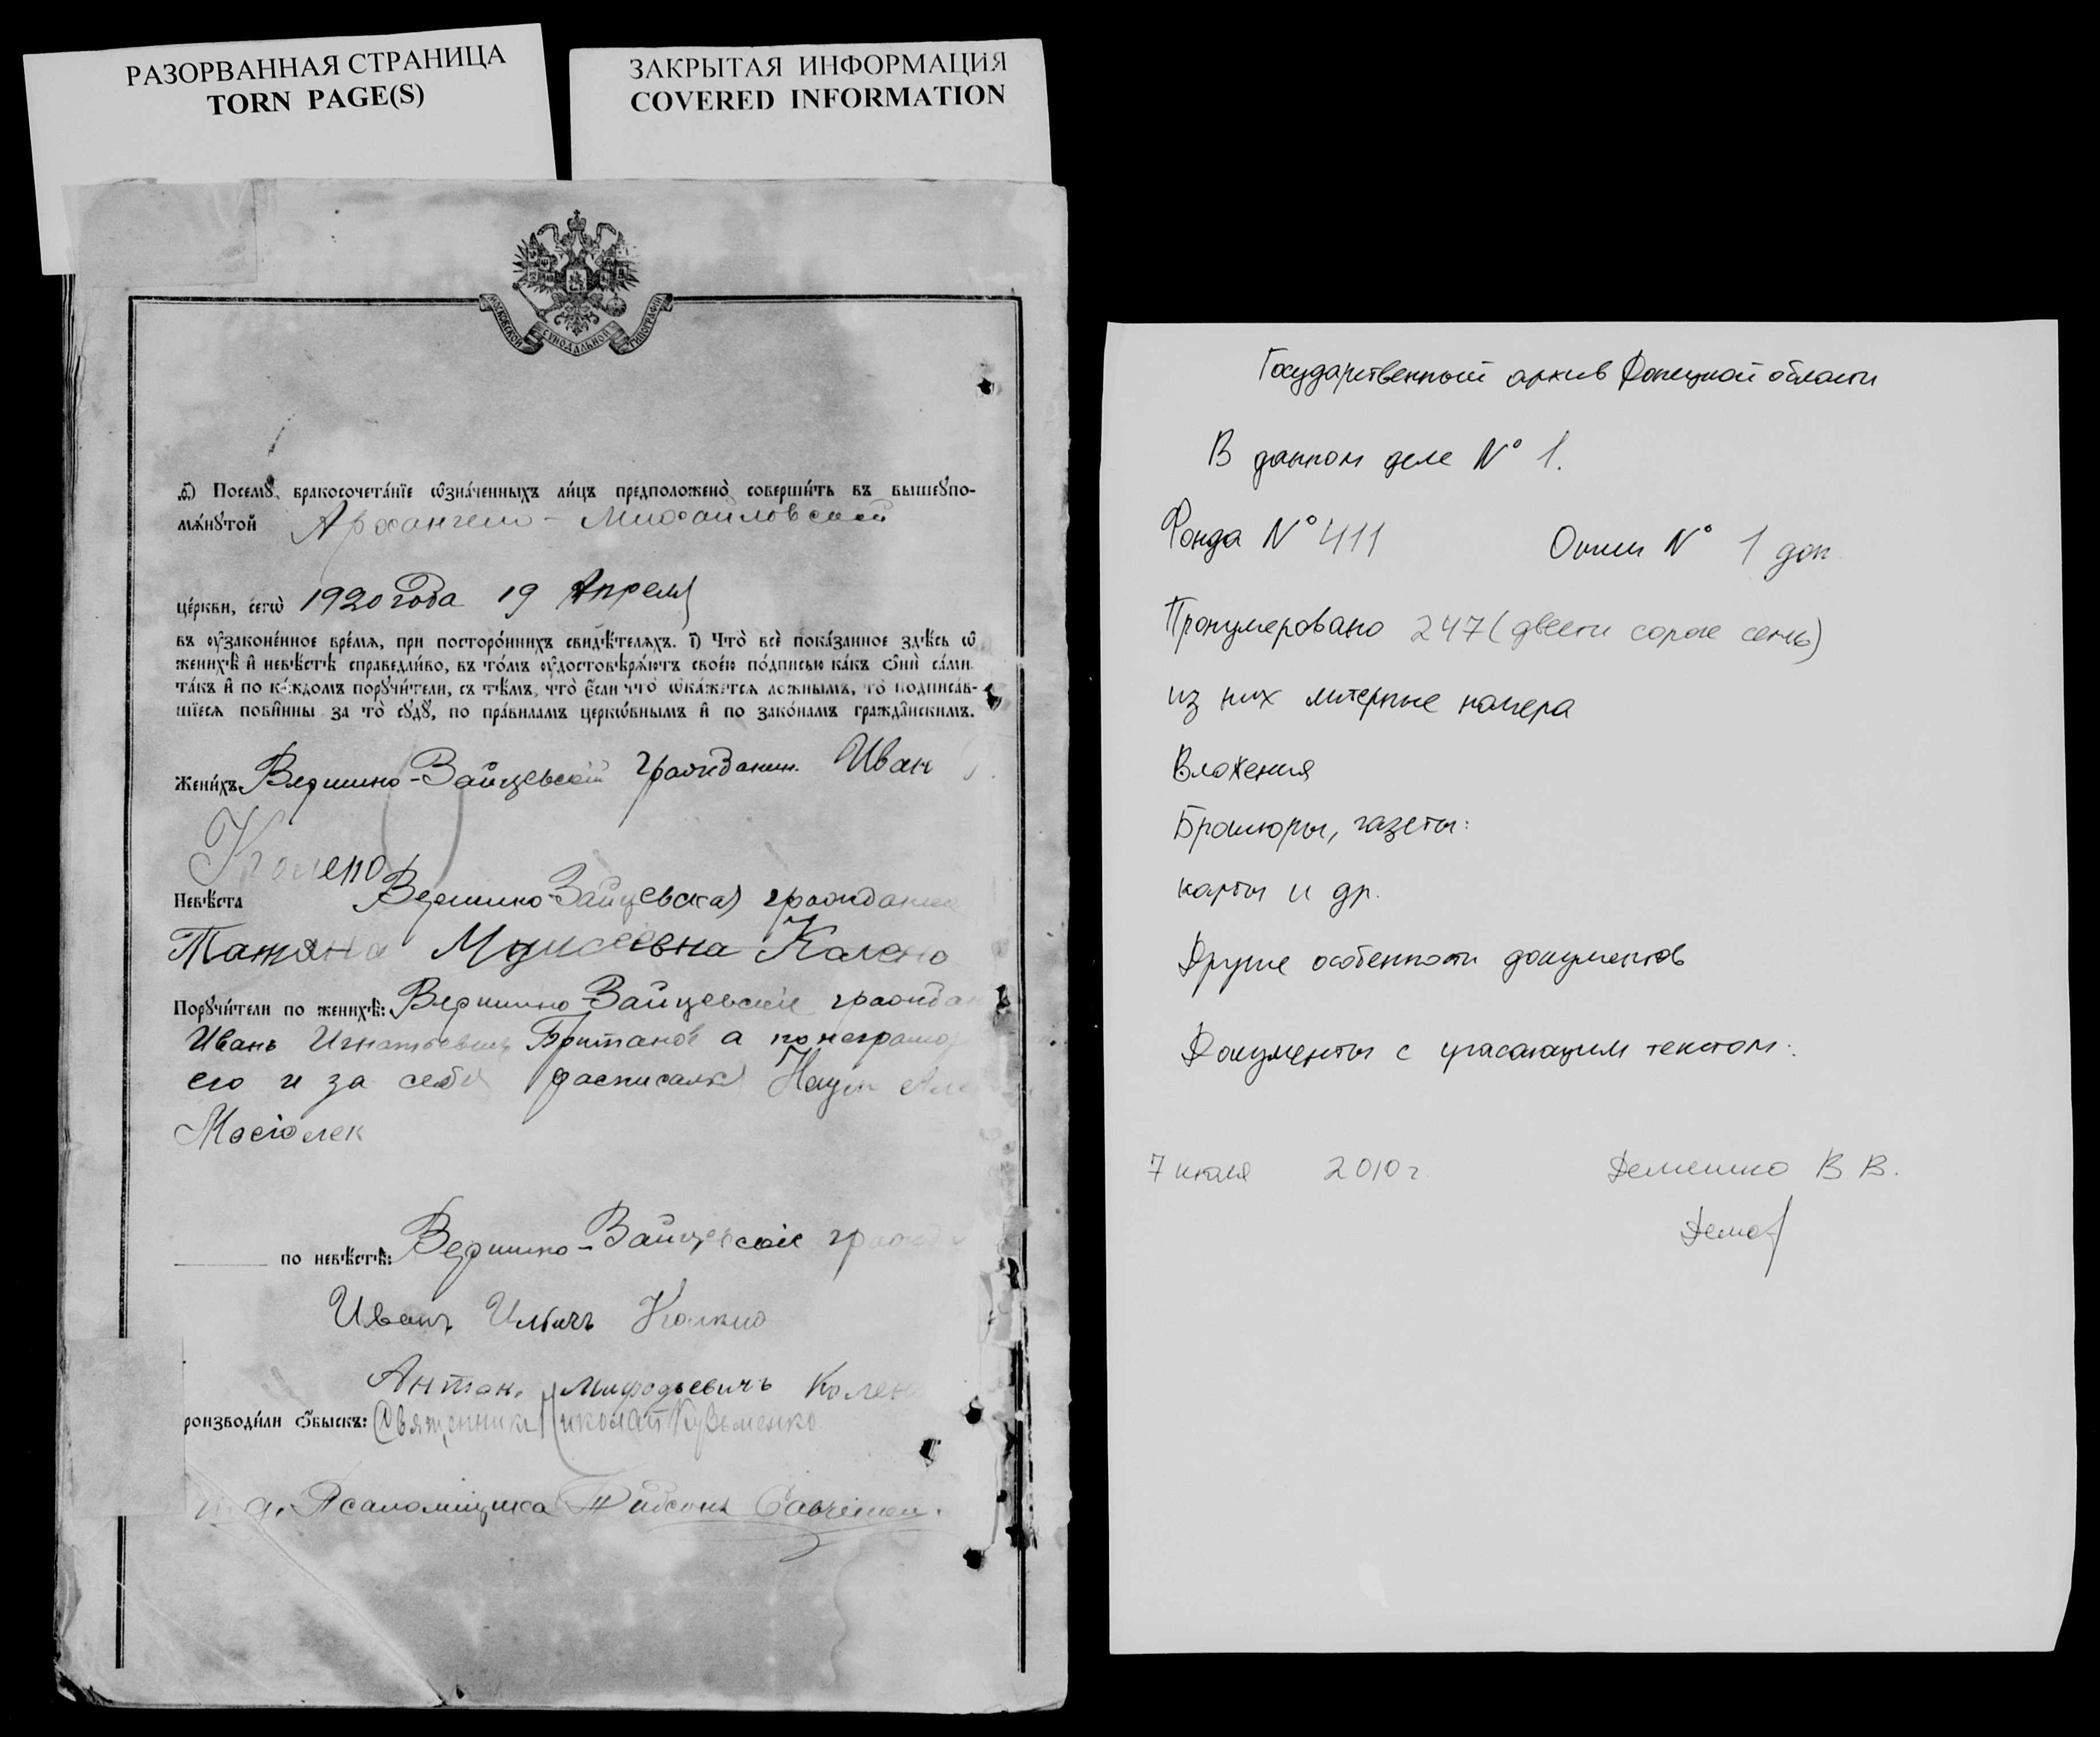 РАЗОРВАННАЯ СТРАНИЦА
TORN PAGE(S)
ЗАКРЫТАЯ ИНФОРМАЦИЯ
COVERED INFORMATION
МОСКОВСКОЙ СѴНОДАЛЬНОЙ ТИПОГРАФІИ
Посемꙋ̀ бракосочета́нїе ѡ҆зна́ченныхъ ли́цъ предположено̀ соверши́ть въ вышеꙋпо-
мѧ́нꙋтой Архангело-Михайловской
це́ркви, сегѡ̀ 1920 года 19 Апреля
въ ᲂу҆законе́нное вре́мѧ, при посторо́ннихъ свидѣ́телѧхъ. і҃) Что̀ всѐ пока́занное здѣ́сь ѡ҆
женихѣ̀ и҆ невѣ́стѣ справедли́во, въ то́мъ ᲂу҆достовѣрѧ́ютъ свое́ю по́дписью ка́къ ѻ҆нѝ са́ми
та́къ и҆ по ка́ждомъ порꙋчи́тели, съ тѣ́мъ, что̀ є҆́сли что̀ ѡ҆ка́жетсѧ ло́жнымъ, то̀ подписа́в-
шїесѧ пови́нны за то̀ сꙋдꙋ̀, по пра́виламъ церко́внымъ и҆ по зако́намъ гражда́нскимъ.
Жени́хъ Верхнно-Зайцевскій гражданин Иван
Колено
Невѣ́ста Верхнно-Зайцевская граждан
Татяна Моисеевна Колено
Порꙋчи́тели по женихѣ̀: Зайцевскіе граждан
Иванъ Игнатьевич Британов а по неграмот
его и за себя расписался Наум
по невѣ́стѣ: Зайцевскіе гражд
Иванъ Ильичъ
Антон Мифодьевичъ Колен
роизводи́ли ѻ҆́быскъ: Священник Николай Кузьменко
и. д. Псаломщика
Государственный архив Донецкой области
В данном деле № 1.
Фонда № 411 Описи № 1 доп
Пронумеровано 247 (двести сорок семь)
из них литерные номера
Вложения
Брошюры, газеты:
карты и др.
Другие особенности документов
Документы с угасающим текстом:
7 июля 2010 г. Демешко В. В.